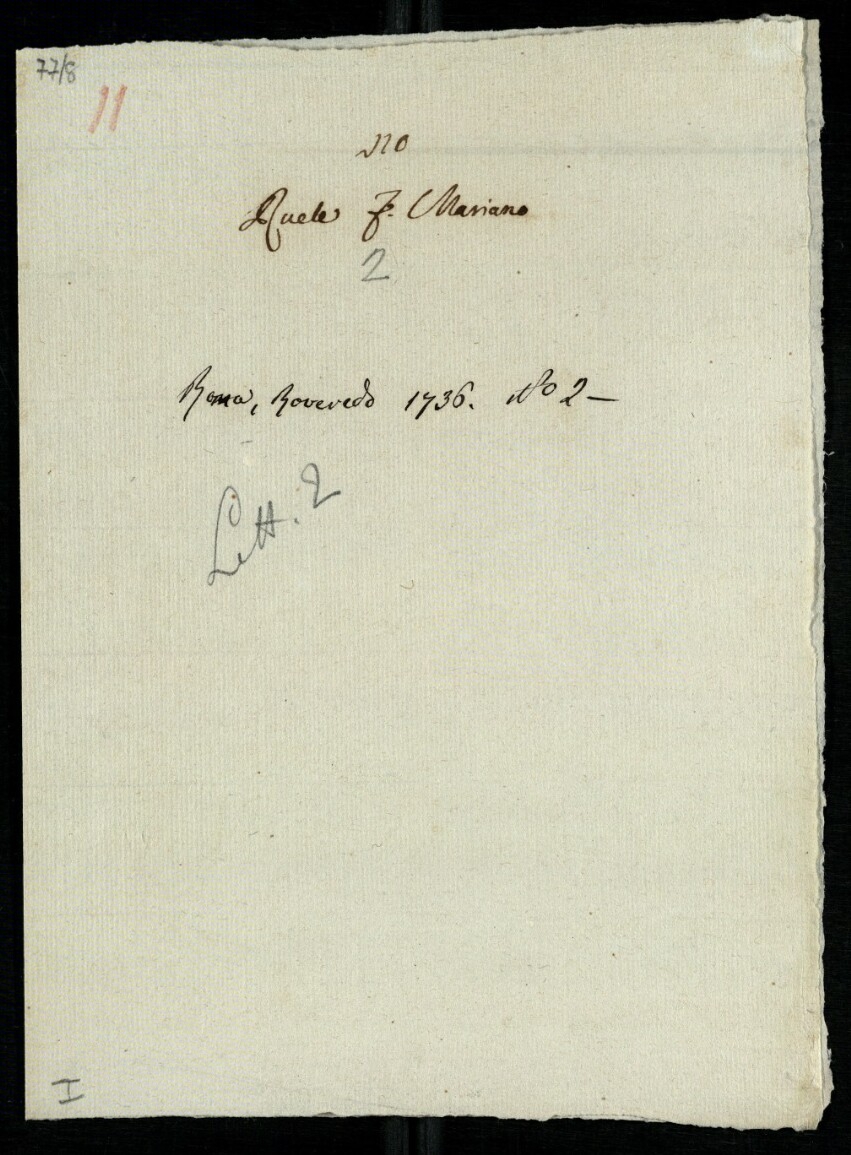 77/8
11
No
Ruele F. Mariano
2
Roma, Roveredo 1736. No 2—
Lett. 2
I